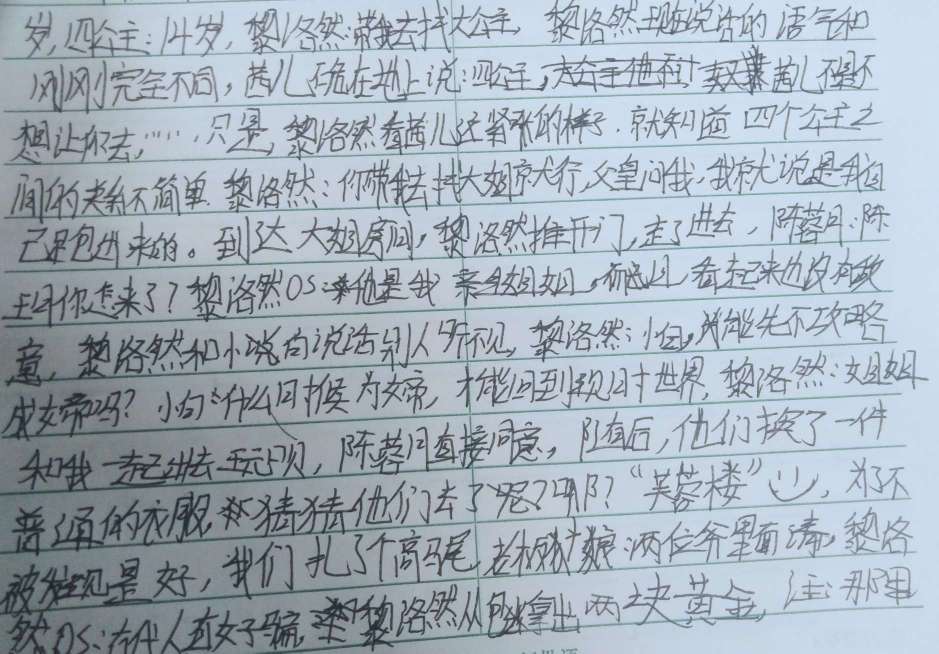 岁,四公主:14岁,黎洛然:带我去找大公主 黎洛然现在说话的语气和
刚刚完全不同,茜儿跪在地上说:四公主,茜儿不是不
想让你去,……只是,黎洛然看茜儿这紧张的样子.就知道 四个公主之
间的关系不简单 黎洛然:你带我去找大姐就行,父皇问我,我就说是我自
己跑进来的。到达 大姐房间,黎洛然推开门,走了进去,陈蓉月:陈
你怎来了?黎洛然OS:他是我亲生姐姐,而且 看起来也没有敌
意,黎洛然和小说白说话别人听不见,黎洛然:小白,我能先不攻略
成女帝吗?小白:什么时候为女帝,才能回到现时世界,黎洛然:姐姐
和我一起出去玩,陈蓉月直接同意,随后,他们换了一件
普通的衣服 猜猜他们去了哪?“芙蓉楼”,为了不
被发现是女,我们扎了个高马尾,老板娘:两位爷里面请,黎洛
然OS:古代人真好骗,黎洛然从包拿出两块黄金,注:那里